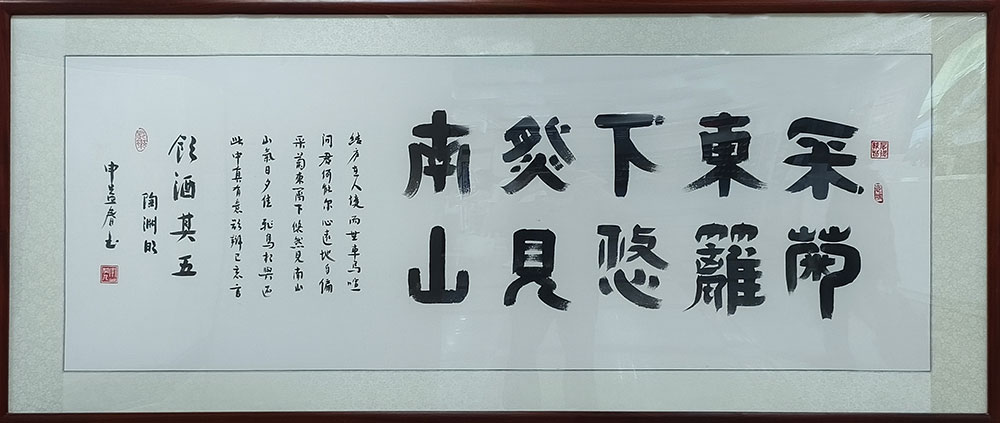 采菊
東籬
下悠
然見
南山
结庐在人境而無車马喧
问君何能尔心遠地自偏
采菊東篱下悠然見南山
山氣日夕佳飛鳥相與还
此中真有意欲辨已忘言
饮酒其五
陶渊明